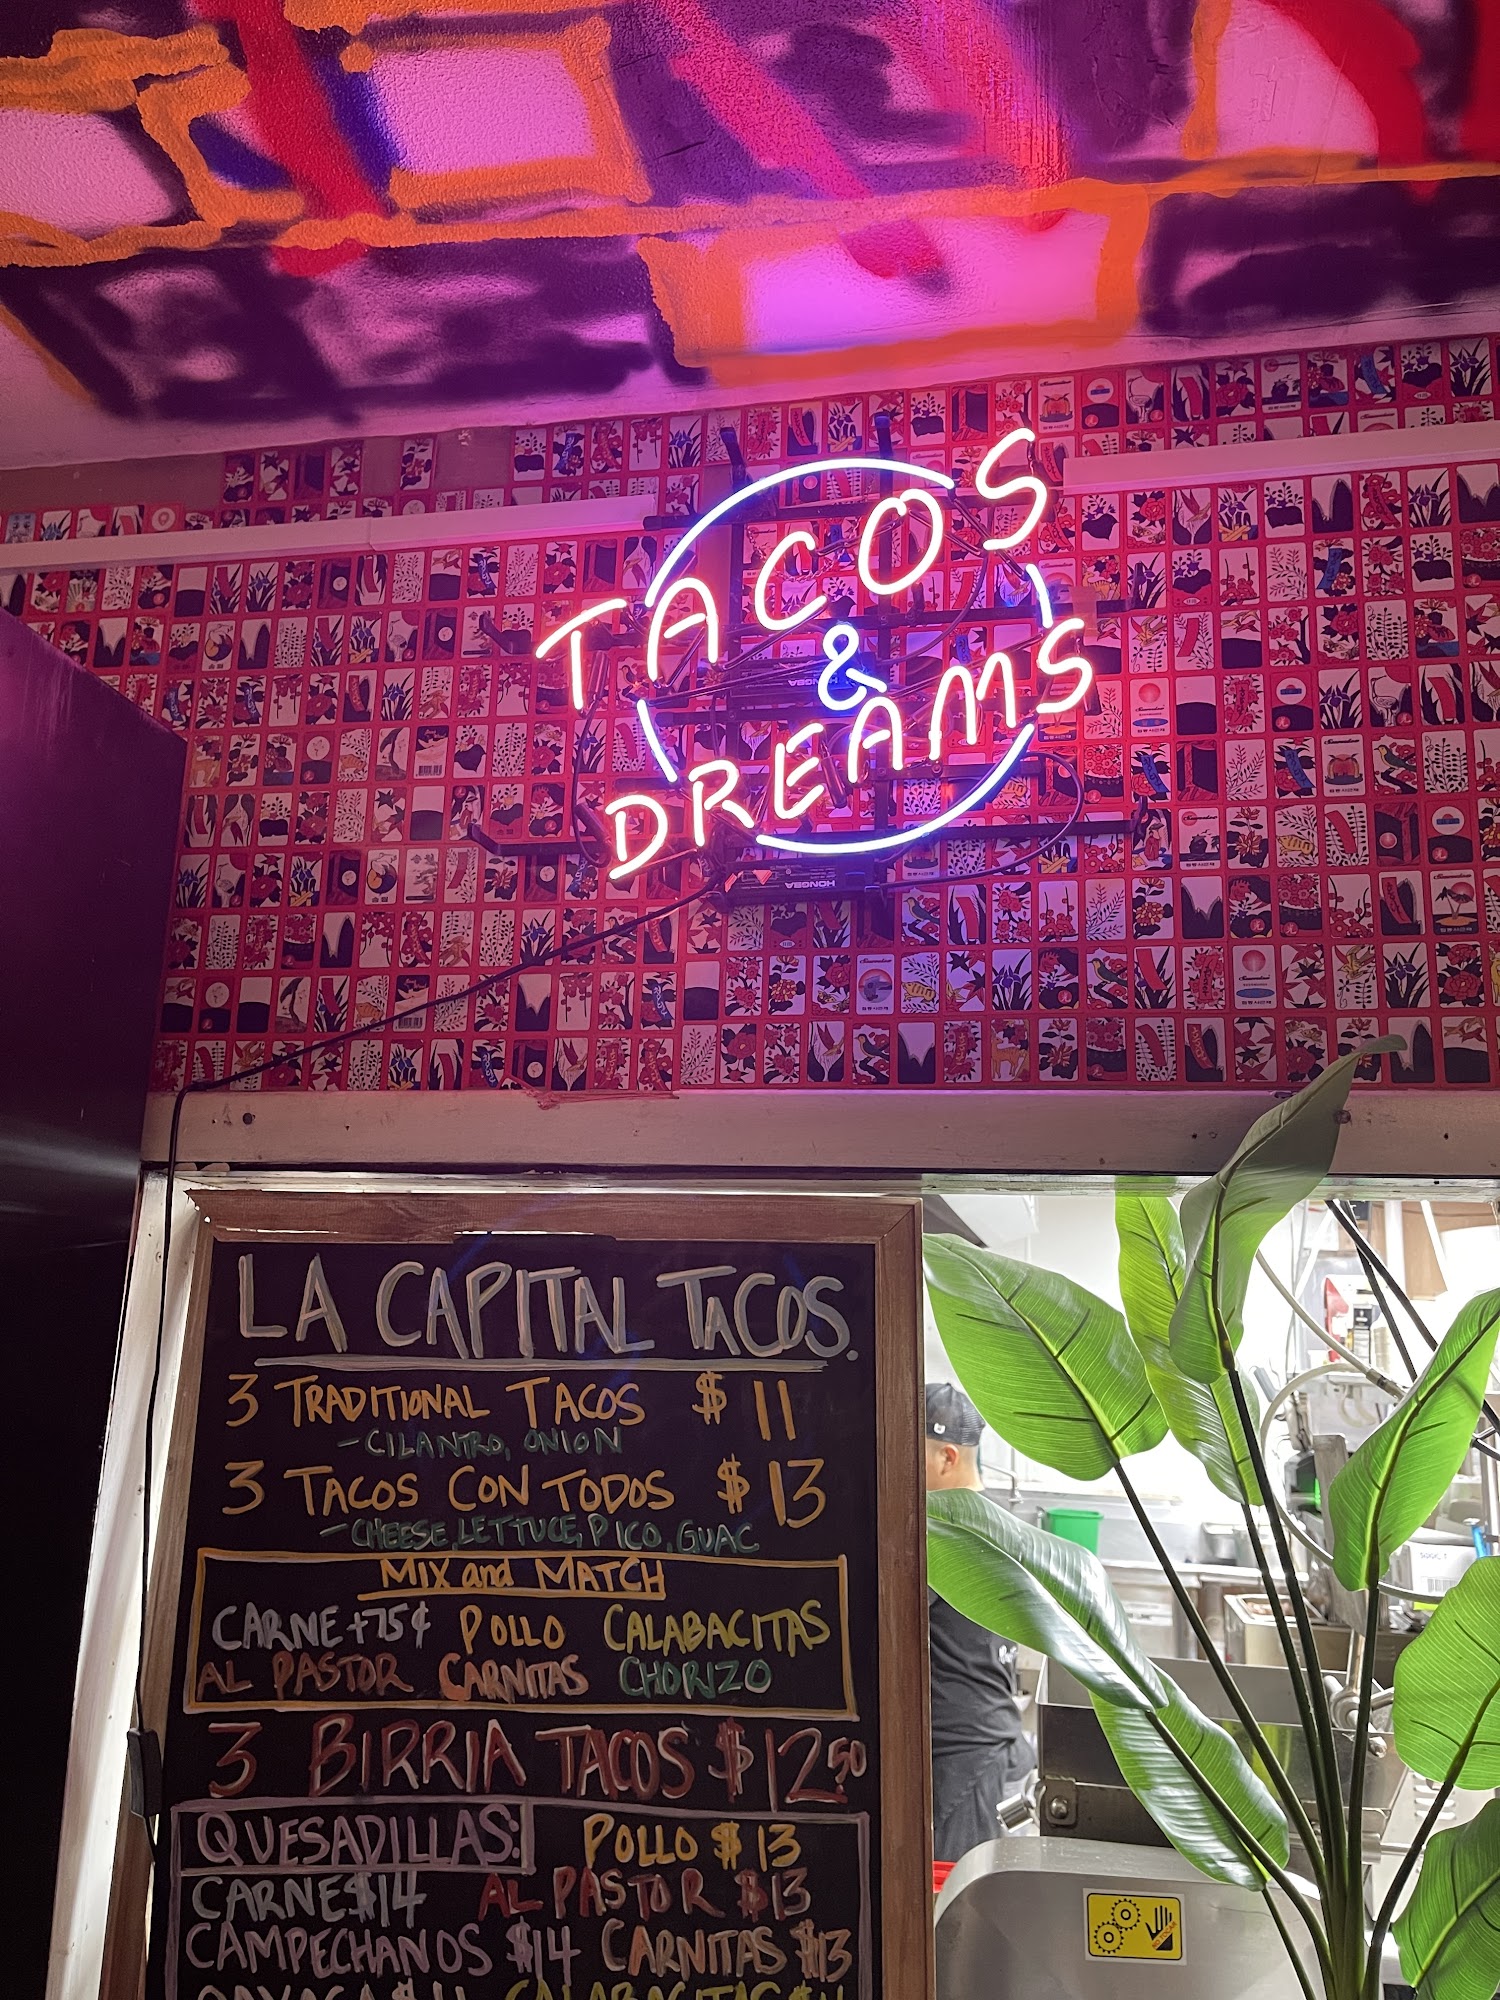 TACOS
&
DREAMS
HONGBA
HONGBA
LA CAPITAL TACOS.
3 TRADITIONAL TACOS $ 11
-CILANTRO, ONION
3 TACOS CON TODOS $ 13
-CHEESE, LETTUCE, PICO, GUAC
MIX and MATCH
CARNE +75¢ POLLO CALABACITAS
AL PASTOR CARNITAS CHORIZO
3 BIRRIA TACOS $12.50
QUESADILLAS: POLLO $13
CARNE $14 AL PASTOR $13
CAMPECHANOS $14 CARNITAS $13
NO TOCAR